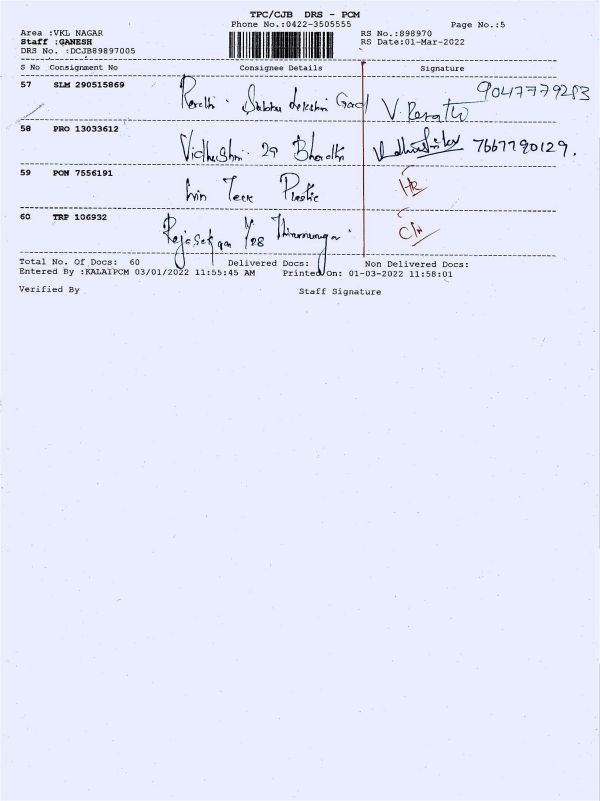 TPC/CJB DRS - PCM
Phone No.:0422-3505555 Page No.:5
Area :VKL NAGAR RS No.:898970
Staff :GANESH RS Date:01-Mar-2022
DRS No. :DCJB89897005
S No Consignment No Consignee Details Signature
57 SLM 290515869
58 PRO 13033612 Vidhushri 29 Bharathi 7667790129.
59 PON 7556191 Plastic
60 TRP 106932
Total No. Of Docs: 60 Delivered Docs: Non Delivered Docs:
Entered By :KALAIPCM 03/01/2022 11:55:45 AM Printed On: 01-03-2022 11:58:01
Verified By Staff Signature